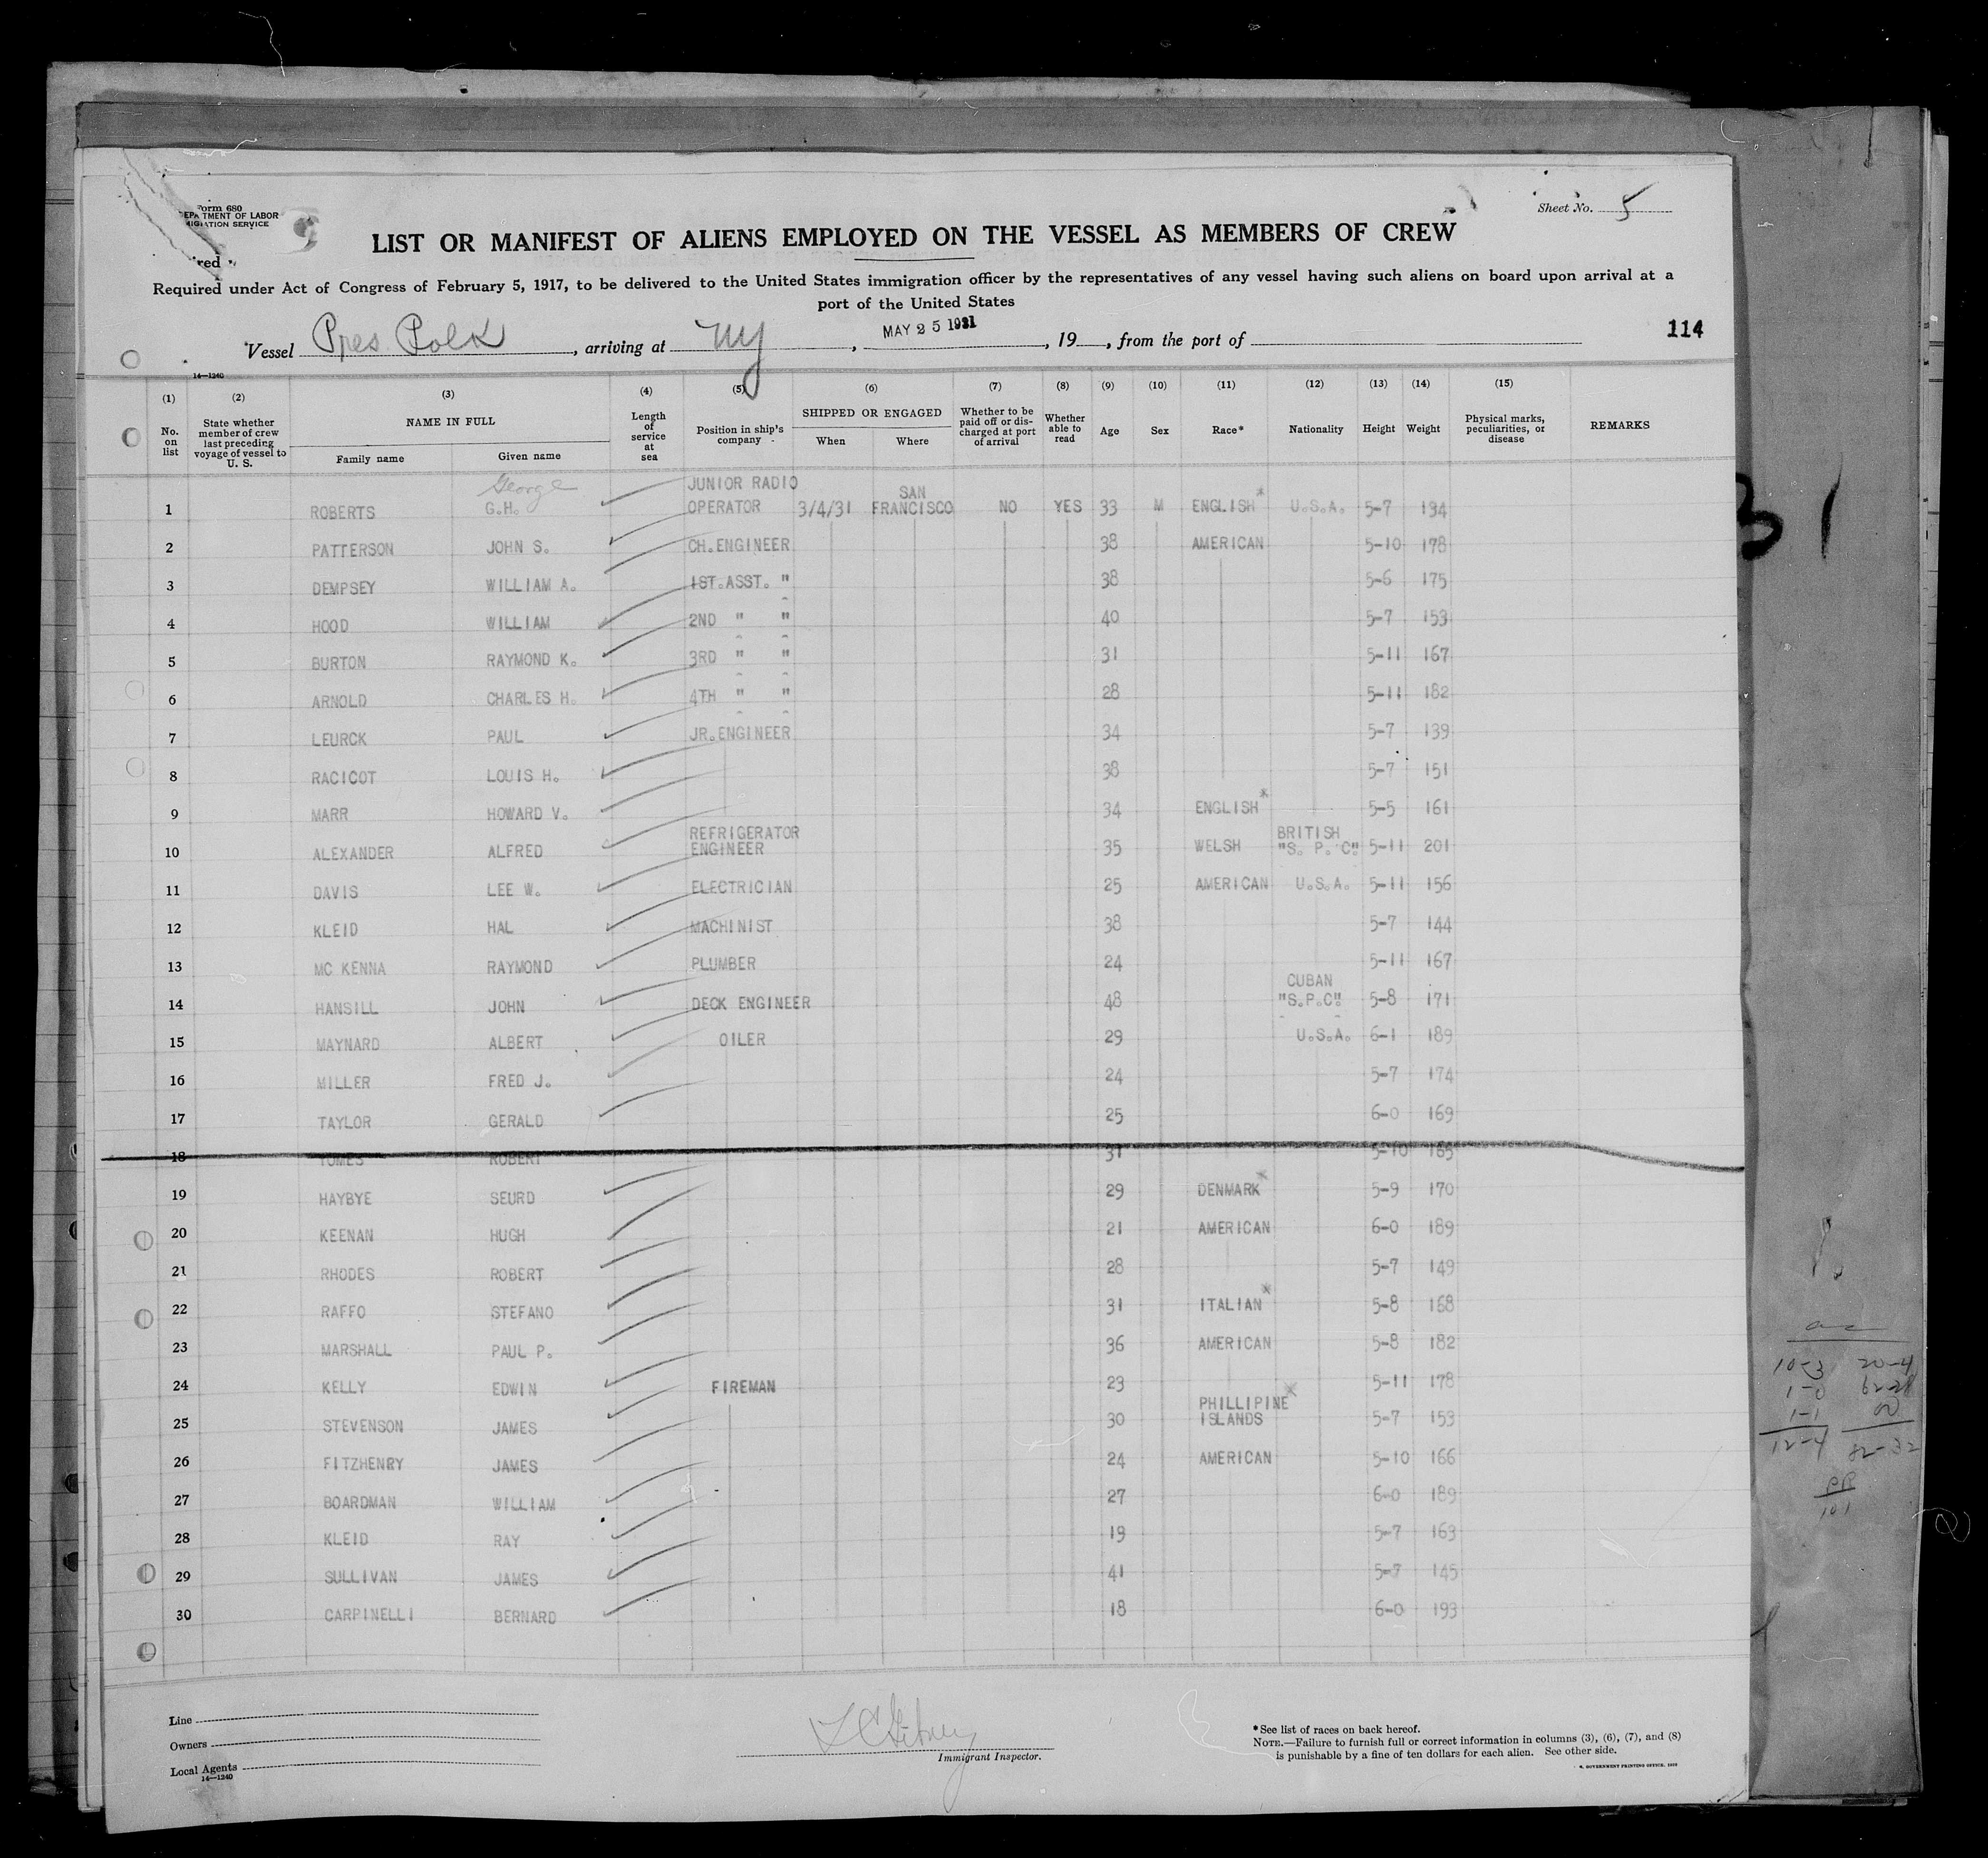 Form 680
DEPARTMENT OF LABOR
IMMIGRATION SERVICE
Sheet No. 5
LIST OR MANIFEST OF ALIENS EMPLOYED ON THE VESSEL AS MEMBERS OF CREW
Required under Act of Congress of February 5, 1917, to be delivered to the United States immigration officer by the representatives of any vessel having such aliens on board upon arrival at a
port of the United States
Vessel Pres Polk, arriving at NY, MAY 25 1931, 19, from the port of
114
14—1240
(1) (2) (3) (4) (5) (6) (7) (8) (9) (10) (11) (12) (13) (14) (15)
No. on list State whether member of crew last preceding voyage of vessel to U. S. NAME IN FULL Family name Given name Length of service at sea Position in ship's company SHIPPED OR ENGAGED When Where Whether to be paid off or discharged at port of arrival Whether able to read Age Sex Race* Nationality Height Weight Physical marks, peculiarities, or disease REMARKS
1 ROBERTS George G.H. JUNIOR RADIO OPERATOR 3/4/31 SAN FRANCISCO NO YES 33 M ENGLISH* U.S.A. 5-7 134
2 PATTERSON JOHN S. CH.ENGINEER 38 AMERICAN 5-10 178
3 DEMPSEY WILLIAM A. 1ST.ASST. " 38 5-6 175
4 HOOD WILLIAM 2ND " " 40 5-7 153
5 BURTON RAYMOND K. 3RD " " 31 5-11 167
6 ARNOLD CHARLES H. 4TH " " 28 5-11 182
7 LEURCK PAUL JR.ENGINEER 34 5-7 139
8 RACICOT LOUIS H. 38 5-7 151
9 MARR HOWARD V. 34 ENGLISH* 5-5 161
10 ALEXANDER ALFRED REFRIGERATOR ENGINEER 35 WELSH BRITISH "S. P. C". 5-11 201
11 DAVIS LEE W. ELECTRICIAN 25 AMERICAN U.S.A. 5-11 156
12 KLEID HAL MACHINIST 38 5-7 144
13 MC KENNA RAYMOND PLUMBER 24 5-11 167
14 HANSILL JOHN DECK ENGINEER 48 CUBAN "S.P.C". 5-8 171
15 MAYNARD ALBERT OILER 29 U.S.A. 6-1 189
16 MILLER FRED J. 24 5-7 174
17 TAYLOR GERALD 25 6-0 169
18 TOMES ROBERT 31 5-10 165
19 HAYBYE SEURD 29 DENMARK* 5-9 170
20 KEENAN HUGH 21 AMERICAN 6-0 189
21 RHODES ROBERT 28 5-7 149
22 RAFFO STEFANO 31 ITALIAN* 5-8 168
23 MARSHALL PAUL P. 36 AMERICAN 5-8 182
24 KELLY EDWIN FIREMAN 23 5-11 178
25 STEVENSON JAMES 30 PHILLIPINE* ISLANDS 5-7 153
26 FITZHENRY JAMES 24 AMERICAN 5-10 166
27 BOARDMAN WILLIAM 27 6-0 189
28 KLEID RAY 19 5-7 163
29 SULLIVAN JAMES 41 5-7 145
30 CARPINELLI BERNARD 18 6-0 193
Line
Owners
Local Agents
14—1240
Immigrant Inspector.
*See list of races on back hereof.
NOTE.—Failure to furnish full or correct information in columns (3), (6), (7), and (8)
is punishable by a fine of ten dollars for each alien. See other side.
31
10-3 20-4
1-0
1-1
12-4 82-32
PR
101